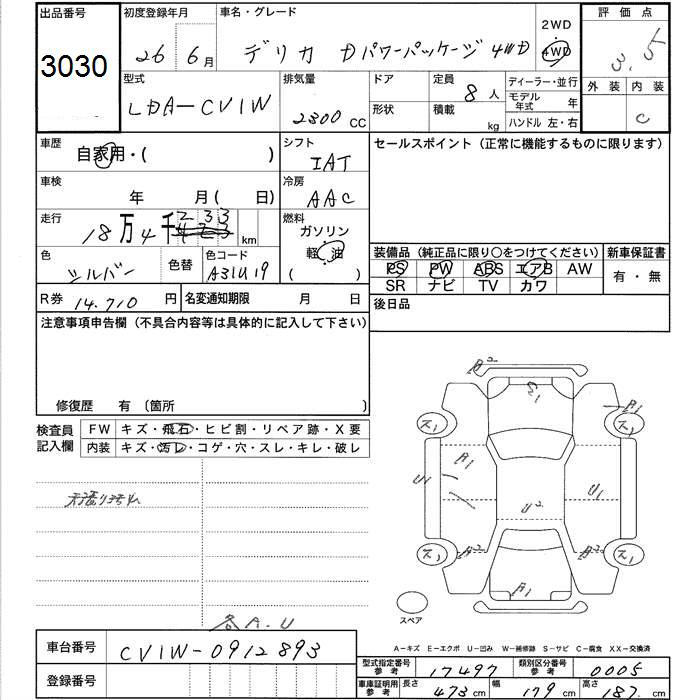 出品番号
3030
初度登録年月
26 6月
車名・グレード
デリカ Dパワーパッケージ 4WD
2WD
4WD
評価点
3.5
外装 内装
C
型式
LDA-CV1W
排気量
2300 CC
ドア
形状
定員
8人
積載
kg
ディーラー・並行
モデル年式 年
ハンドル 左・右
車歴
自家用・( )
シフト
IAT
セールスポイント (正常に機能するものに限ります)
車検
年 月( 日)
冷房
AAC
走行
18万4千233
423
km
燃料
ガソリン
軽油
( )
色
シルバー
色替
色コード
A31U19
装備品 (純正品に限り○をつけてください)
新車保証書
PS PW ABS エアB AW
SR ナビ TV カワ
有・無
R券 14.710 円
名変通知期限 月 日
後日品
注意事項申告欄 (不具合内容等は具体的に記入して下さい)
修復歴 有 〔箇所 〕
検査員記入欄
FW キズ・飛石・ヒビ割・リペア跡・X要
内装 キズ・汚レ・コゲ・穴・スレ・キレ・破レ
A2
S1
ス1
B1
ス1
A1
U1
U2
U1
ス1
A2
A2
ス1
A1
スペア
各A.U
A-キズ E-エクボ U-凹み W-補修跡 S-サビ C-腐食 XX-交換済
車台番号
CV1W-0912893
登録番号
型式指定番号参考
17497
類別区分番号参考
0005
車庫証明用参考
長さ 473cm
幅 179cm
高さ 187cm